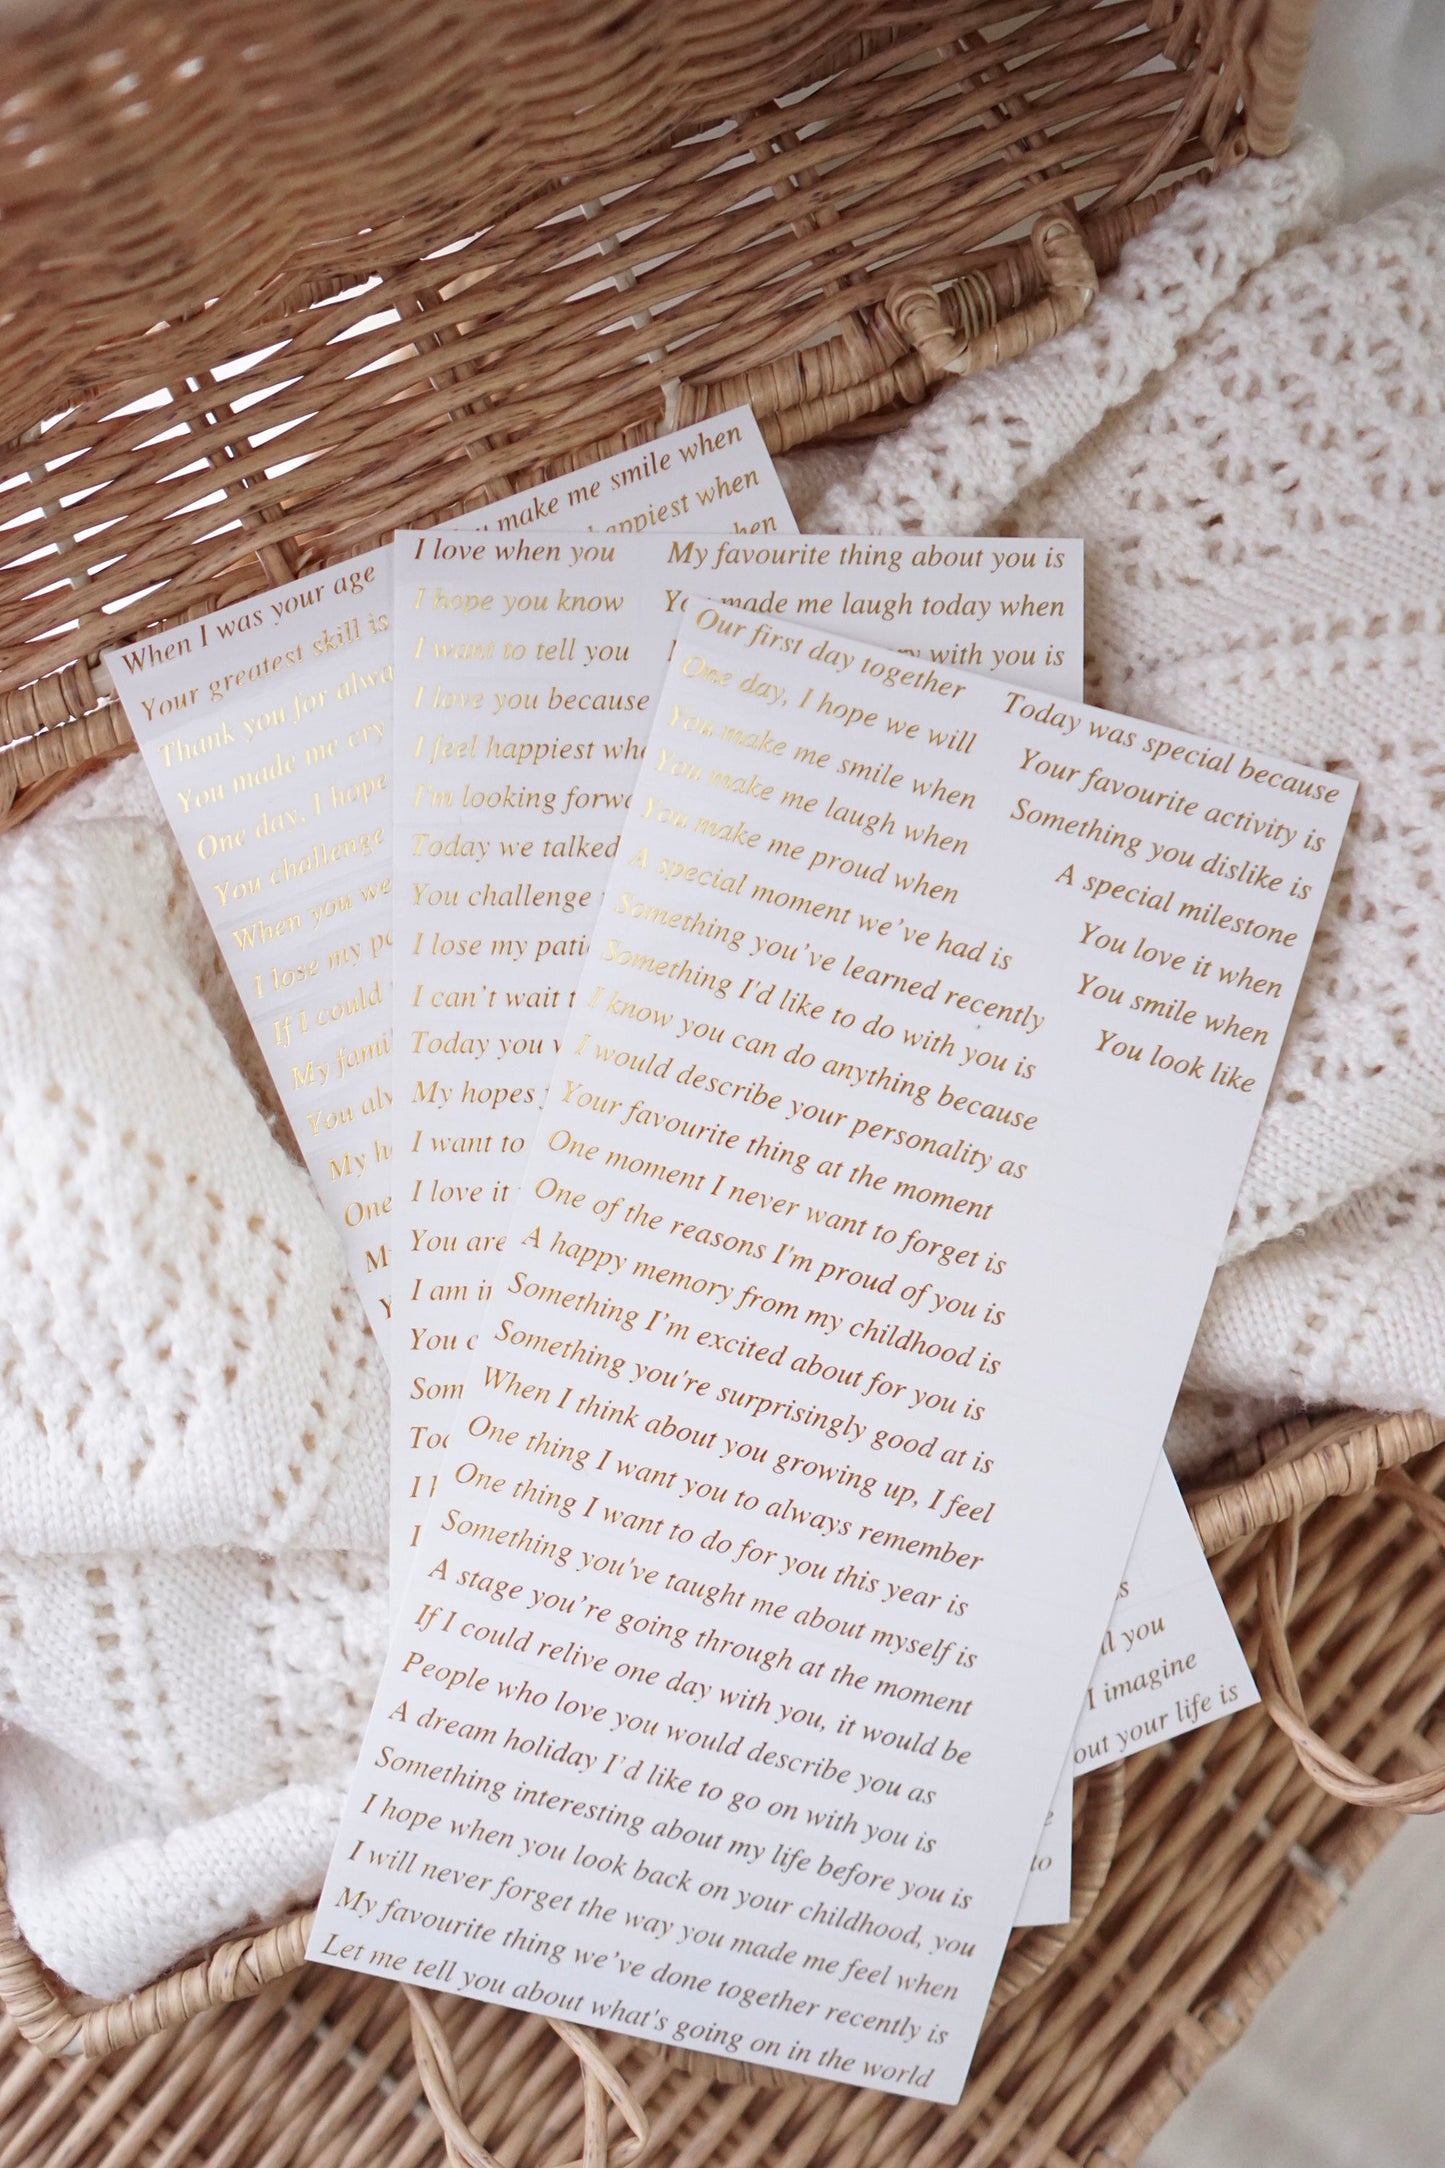 make me smile when
happiest when
when
When I was your age
Your greatest skill is
Thank you for
You made me cry
One day, I hope
You challenge
When you
I lose my
If I could
My
You
My
One
I love when you
I hope you know
I want to tell you
I love you because
I feel happiest
I'm looking
Today we talked
You challenge
I lose my
I can't wait
Today you
My hopes
I want to
I love it
You are
I am
You
I
I
My favourite thing about you is
made me laugh today when
with you is
Our first day together
One day, I hope we will
You make me smile when
You make me laugh when
You make me proud when
A special moment we've had is
Something you've learned recently
Something I'd like to do with you is
I know you can do anything because
I would describe your personality as
Your favourite thing at the moment
One moment I never want to forget is
One of the reasons I'm proud of you is
A happy memory from my childhood is
Something I'm excited about for you is
Something you're surprisingly good at is
When I think about you growing up, I feel
One thing I want you to always remember
One thing I want to do for you this year is
Something you've taught me about myself is
A stage you're going through at the moment
If I could relive one day with you, it would be
People who love you would describe you as
A dream holiday I'd like to go on with you is
Something interesting about my life before you is
I hope when you look back on your childhood, you
I will never forget the way you made me feel when
My favourite thing we've done together recently is
Let me tell you about what's going on in the world
Today was special because
Your favourite activity is
Something you dislike is
A special milestone
You love it when
You smile when
You look like
you
I imagine
out your life is
to